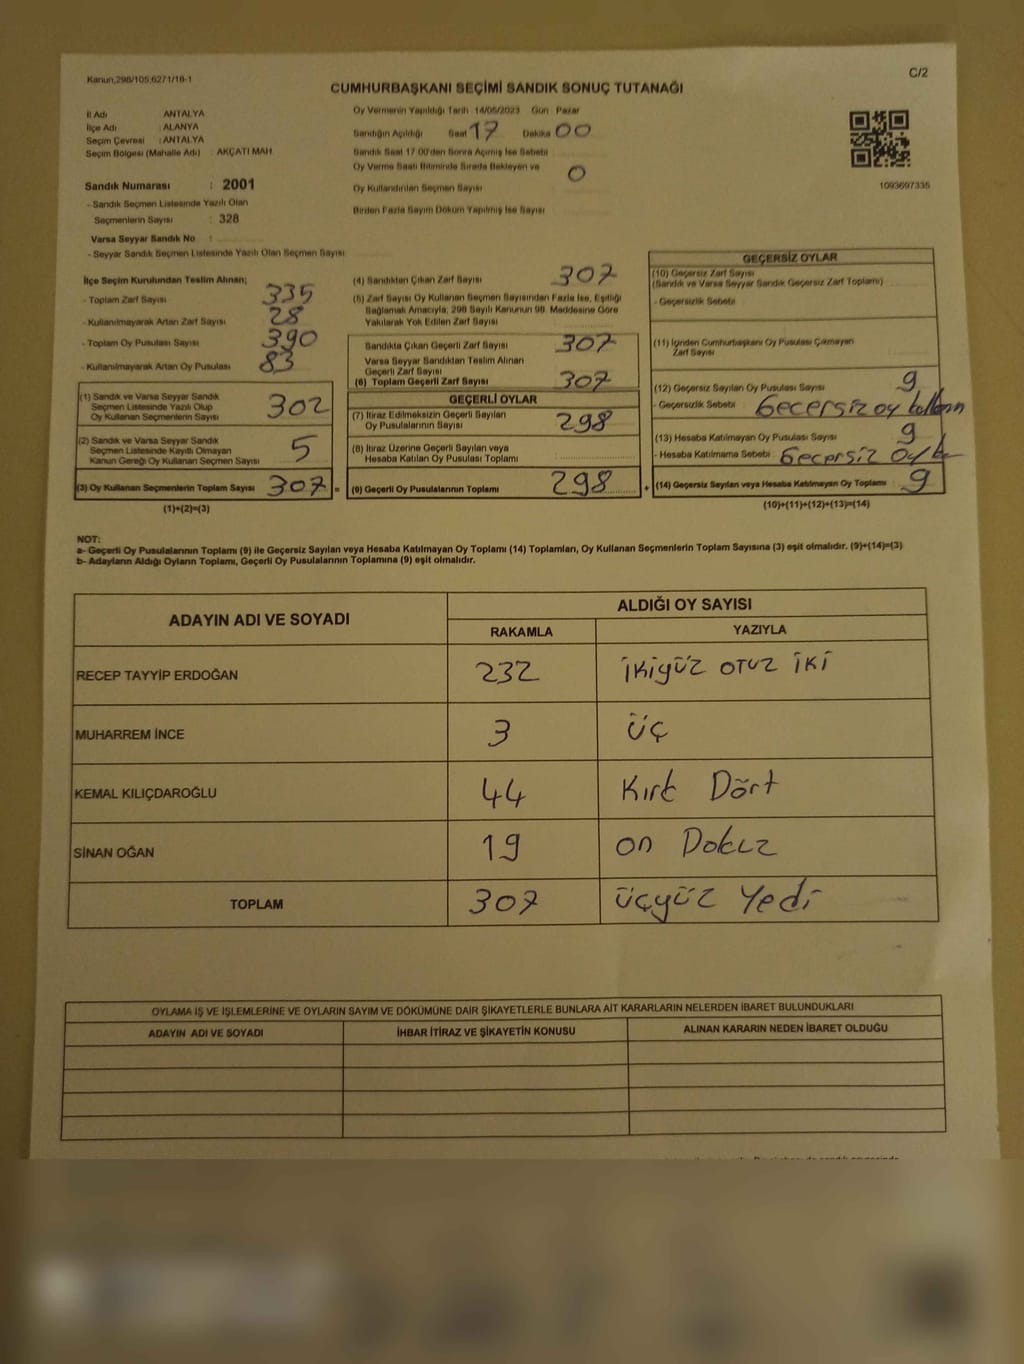 Kanun,298/105,6271/18-1
C/2
CUMHURBAŞKANI SEÇİMİ SANDIK SONUÇ TUTANAĞI
İl Adı ANTALYA
İlçe Adı : ALANYA
Seçim Çevresi : ANTALYA
Seçim Bölgesi (Mahalle Adı) : AKÇATI MAH.
Sandık Numarası : 2001
- Sandık Seçmen Listesinde Yazılı Olan
Seçmenlerin Sayısı : 328
Varsa Seyyar Sandık No :
- Seyyar Sandık Seçmen Listesinde Yazılı Olan Seçmen Sayısı
Oy Vermenin Yapıldığı Tarih 14/05/2023 Gün : Pazar
Sandığın Açıldığı Saat 17 Dakika 00
Sandık Saat 17:00'den Sonra Açılmış İse Sebebi
Oy Verme Saati Bitiminde Sırada Bekleyen ve
Oy Kullandırılan Seçmen Sayısı 0
Birden Fazla Sayım Döküm Yapılmış İse Sayısı
1093697335
İlçe Seçim Kurulundan Teslim Alınan;
- Toplam Zarf Sayısı 335
- Kullanılmayarak Artan Zarf Sayısı 28
- Toplam Oy Pusulası Sayısı 390
- Kullanılmayarak Artan Oy Pusulası 83
(1) Sandık ve Varsa Seyyar Sandık
Seçmen Listesinde Yazılı Olup
Oy Kullanan Seçmenlerin Sayısı 302
(2) Sandık ve Varsa Seyyar Sandık
Seçmen Listesinde Kayıtlı Olmayan
Kanun Gereği Oy Kullanan Seçmen Sayısı 5
(3) Oy Kullanan Seçmenlerin Toplam Sayısı 307 =
(1)+(2)=(3)
(4) Sandıktan Çıkan Zarf Sayısı 307
(5) Zarf Sayısı Oy Kullanan Seçmen Sayısından Fazla İse, Eşitliği
Sağlamak Amacıyla, 298 Sayılı Kanunun 98. Maddesine Göre
Yakılarak Yok Edilen Zarf Sayısı
Sandıkta Çıkan Geçerli Zarf Sayısı 307
Varsa Seyyar Sandıktan Teslim Alınan
Geçerli Zarf Sayısı
(6) Toplam Geçerli Zarf Sayısı 307
GEÇERLİ OYLAR
(7) İtiraz Edilmeksizin Geçerli Sayılan
Oy Pusulalarının Sayısı 298
(8) İtiraz Üzerine Geçerli Sayılan veya
Hesaba Katılan Oy Pusulası Toplamı
(9) Geçerli Oy Pusulalarının Toplamı 298 +
GEÇERSİZ OYLAR
(10) Geçersiz Zarf Sayısı
(Sandık ve Varsa Seyyar Sandık Geçersiz Zarf Toplamı)
- Geçersizlik Sebebi
(11) İçinden Cumhurbaşkanı Oy Pusulası Çıkmayan
Zarf Sayısı
(12) Geçersiz Sayılan Oy Pusulası Sayısı 9
- Geçersizlik Sebebi : Gecersiz oy
(13) Hesaba Katılmayan Oy Pusulası Sayısı 9
- Hesaba Katılmama Sebebi : Gecersiz oy
(14) Geçersiz Sayılan veya Hesaba Katılmayan Oy Toplamı 9
(10)+(11)+(12)+(13)=(14)
NOT:
a- Geçerli Oy Pusulalarının Toplamı (9) ile Geçersiz Sayılan veya Hesaba Katılmayan Oy Toplamı (14) Toplamları, Oy Kullanan Seçmenlerin Toplam Sayısına (3) eşit olmalıdır. (9)+(14)=(3)
b- Adayların Aldığı Oyların Toplamı, Geçerli Oy Pusulalarının Toplamına (9) eşit olmalıdır.
ADAYIN ADI VE SOYADI ALDIĞI OY SAYISI
RAKAMLA YAZIYLA
RECEP TAYYİP ERDOĞAN 232 ikiyüz otuz iki
MUHARREM İNCE 3 üç
KEMAL KILIÇDAROĞLU 44 Kırk Dört
SİNAN OĞAN 19 on Dokuz
TOPLAM 307 üçyüz Yedi
OYLAMA İŞ VE İŞLEMLERİNE VE OYLARIN SAYIM VE DÖKÜMÜNE DAİR ŞİKAYETLERLE BUNLARA AİT KARARLARIN NELERDEN İBARET BULUNDUKLARI
ADAYIN ADI VE SOYADI İHBAR İTİRAZ VE ŞİKAYETİN KONUSU ALINAN KARARIN NEDEN İBARET OLDUĞU